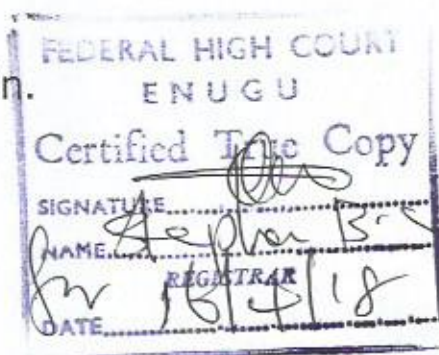 n.
FEDERAL HIGH COURT
ENUGU
Certified True Copy
SIGNATURE
NAME Stephen
REGISTRAR
DATE 16/4/18